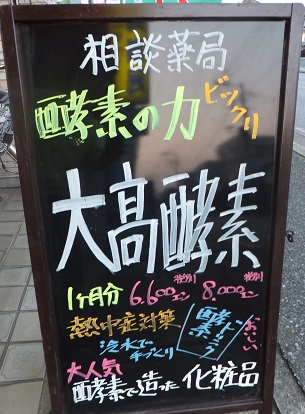 相談薬局
酵素の力
ビックリ
大高酵素
1ヶ月分 6.600エン 税別 8.000エン 税別
熱中症対策
冷水で
手づくり
酵素
ドリンク
おいしい
大人気
酵素で造った 化粧品